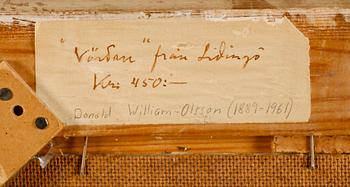 "Vårdar" från Lidingö
Kr: 450:-
Donald William-Olsson (1889-1961)